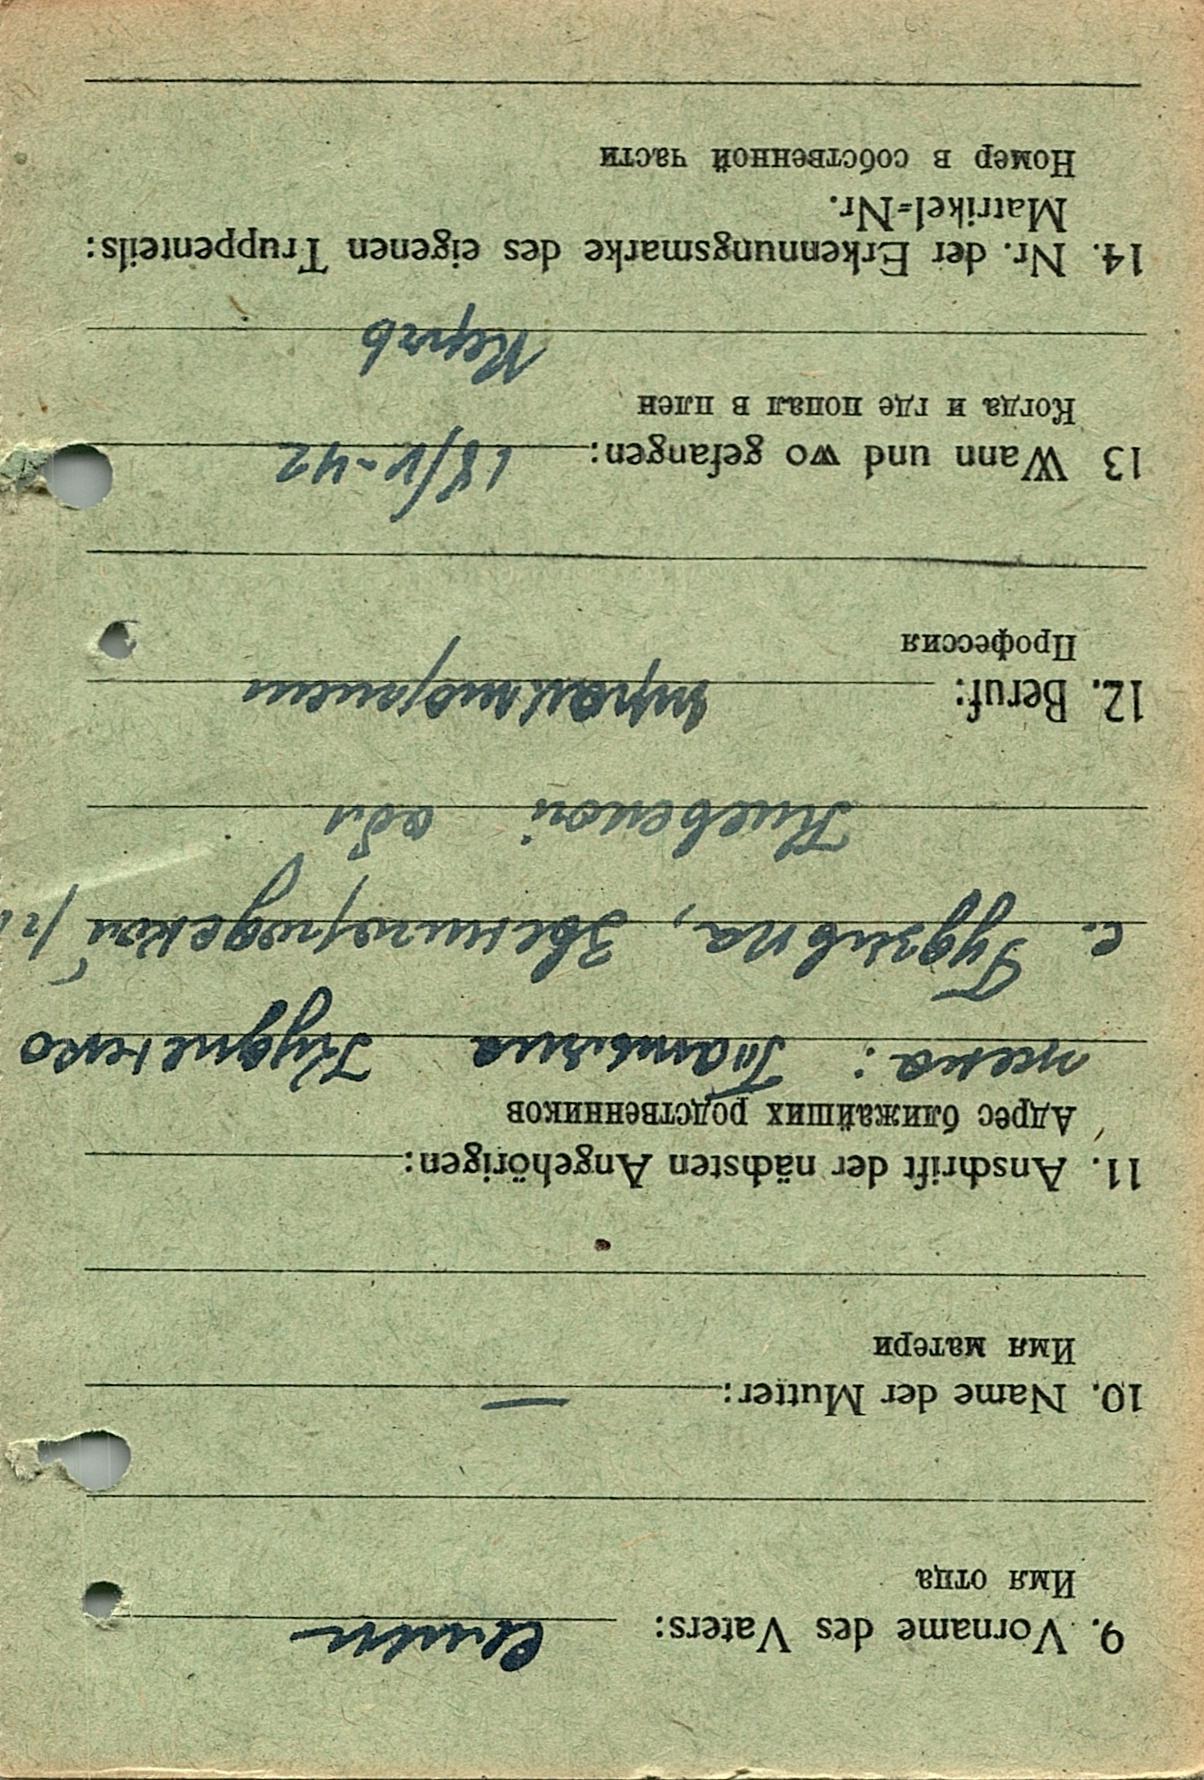 9. Vorname des Vaters:
Имя отца
10. Name der Mutter: —
Имя матери
11. Anschrift der nächsten Angehörigen:
Адрес ближайших родственников
жена: Татьяна
с. Гудзивка, Звенигородской
Киевской обл
12. Beruf: тракторист
Профессия
13 Wann und wo gefangen: 18/V-42
Когда и где попал в плен
Керчь
14. Nr. der Erkennungsmarke des eigenen Truppenteils:
Matrikel-Nr.
Номер в собственной части